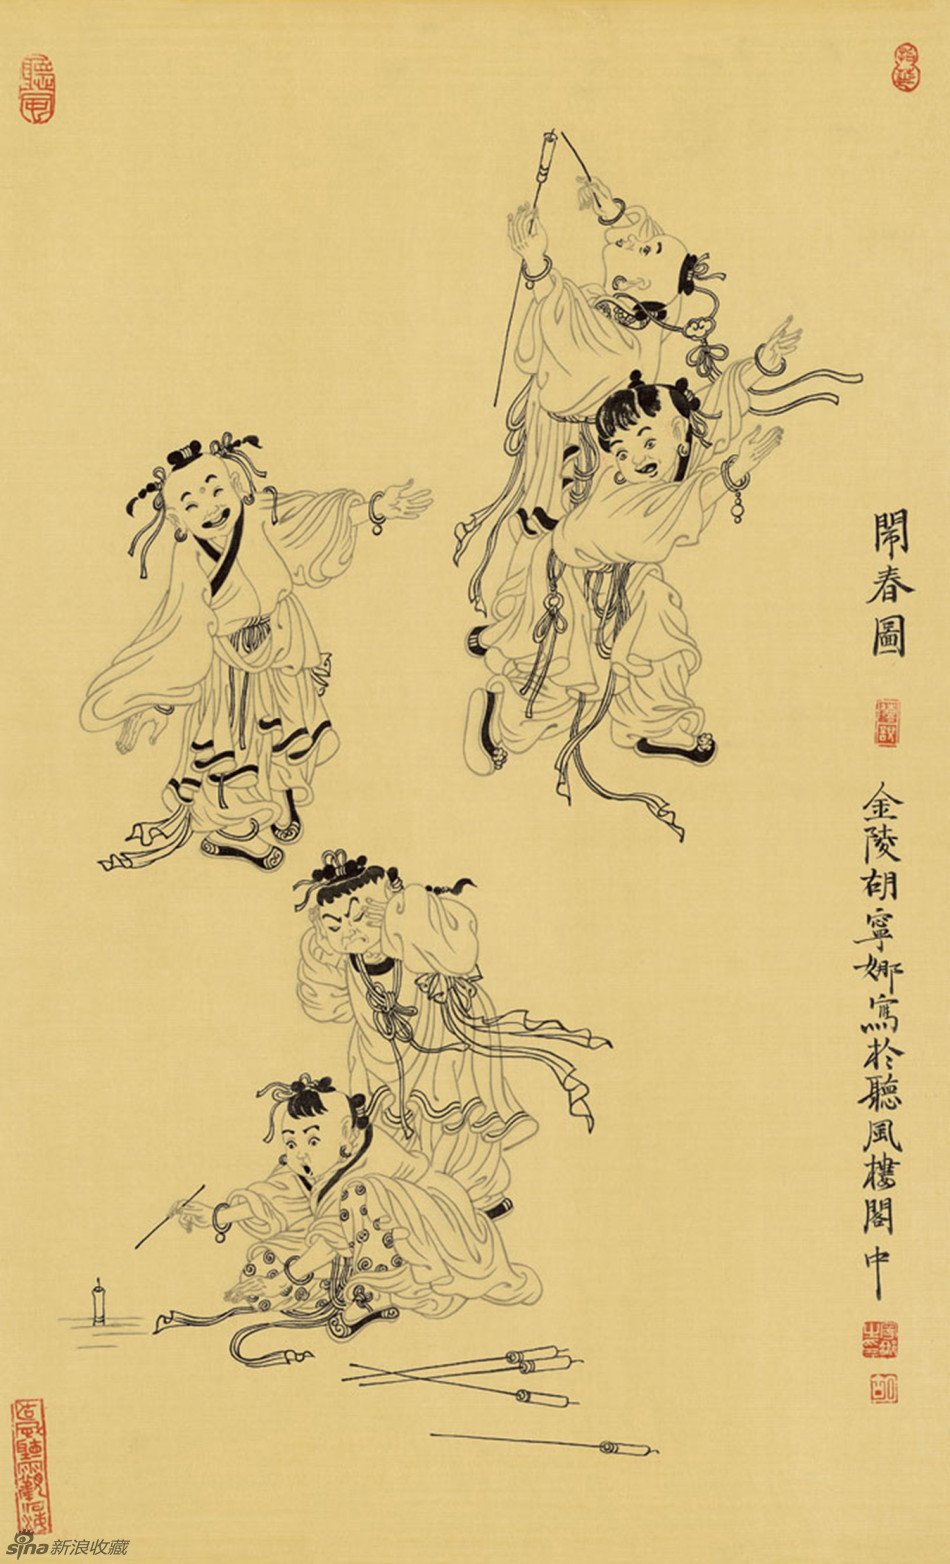 鬧春圖
金陵胡寧娜寫於聽風樓閣中
聽風
sina新浪收藏